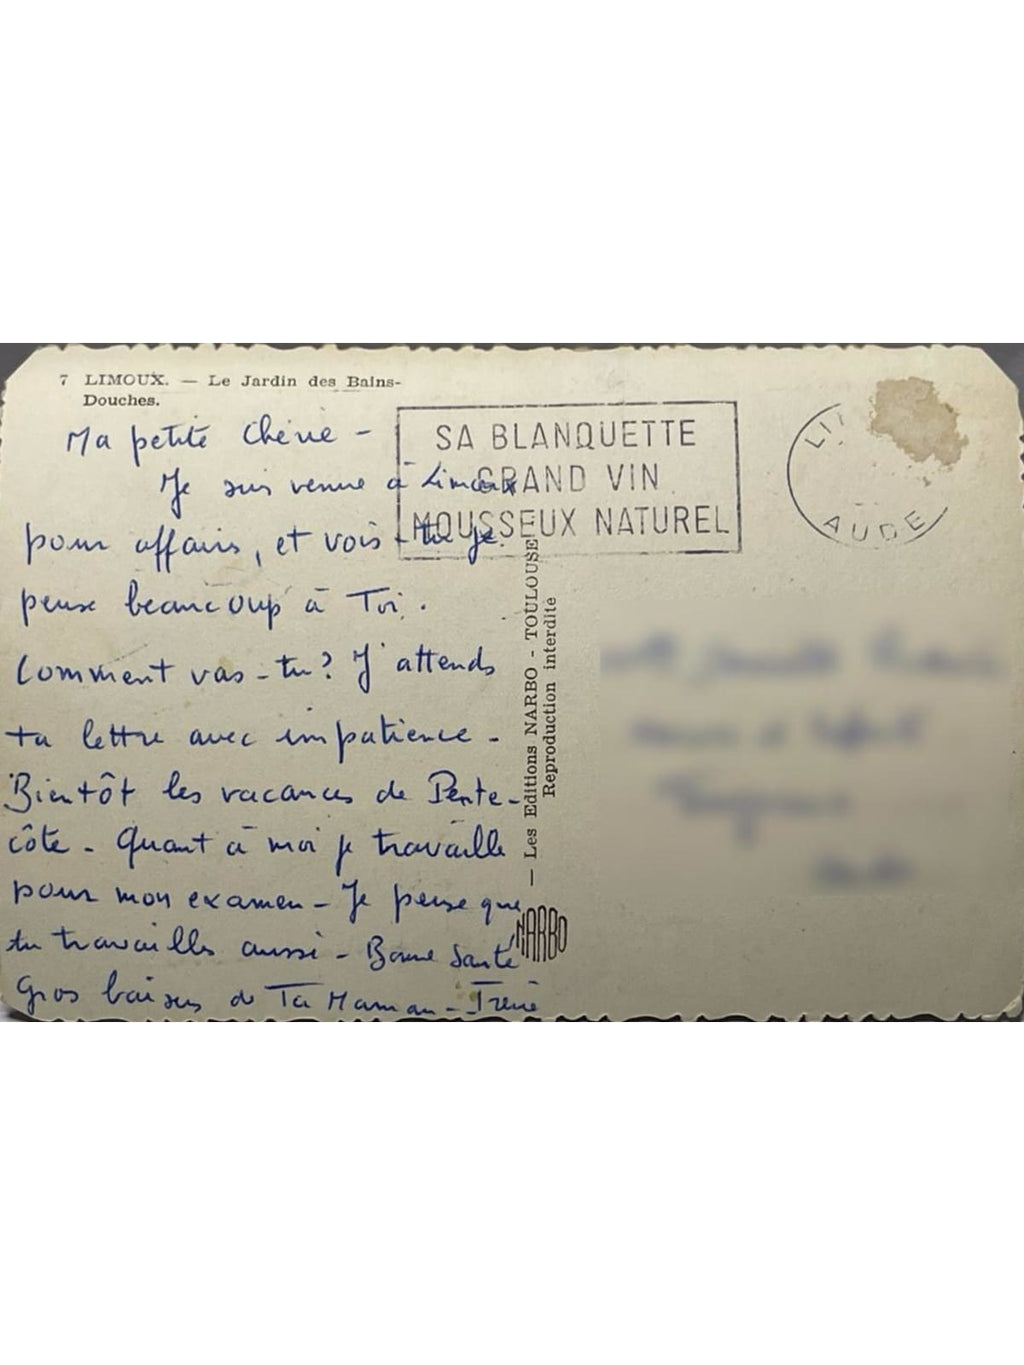 7 LIMOUX. — Le Jardin des Bains-
Douches.
Ma petite Chérie -
Je suis venue à Limoux
pour affaires, et vois-tu je
pense beaucoup à Toi.
Comment vas-tu? J'attends
ta lettre avec impatience -
Bientôt les vacances de Pente-
côte - Quant à moi je travaille
pour mon examen - Je pense que
tu travailles aussi - Bonne Santé
Gros baisers de Ta Maman - Irène
SA BLANQUETTE
GRAND VIN
MOUSSEUX NATUREL
AUDE
— Les Editions NARBO - TOULOUSE
Reproduction interdite
NARBO